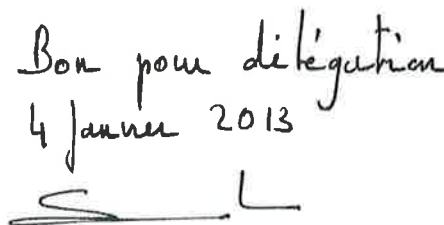 Bon pour délégation
4 Janvier 2013